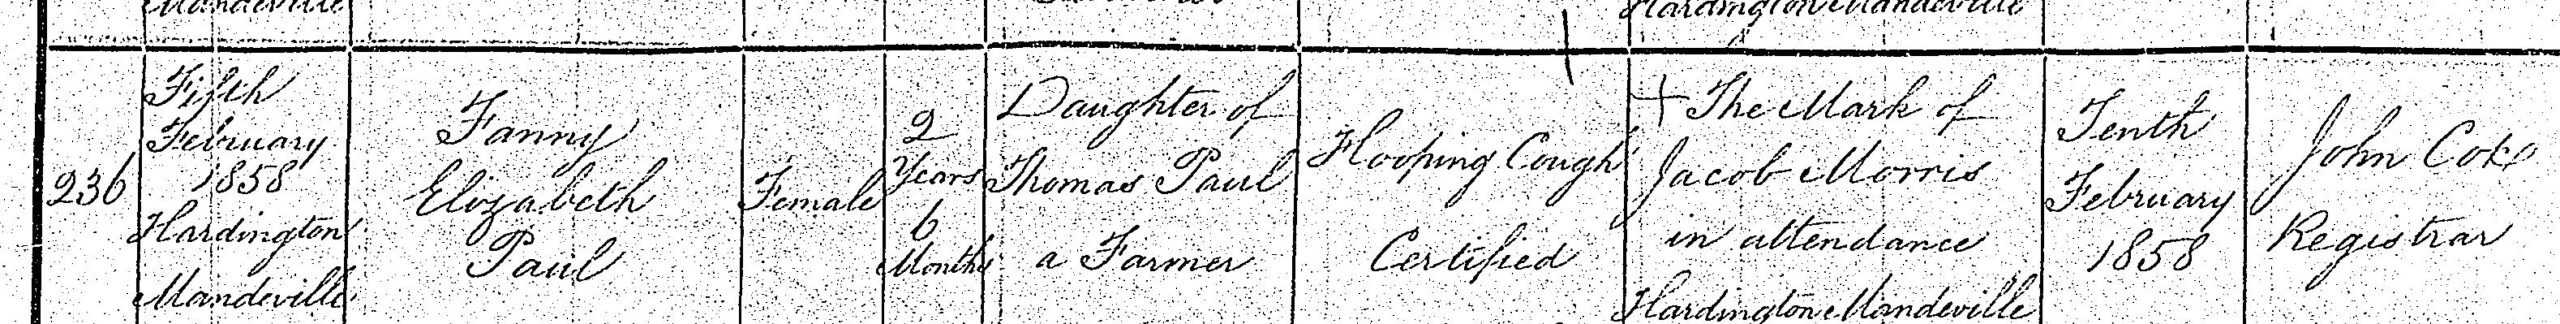 Mandeville
Hardington Mandeville
236
Fifth
February
1858
Hardington
Mandeville
Fanny
Elizabeth
Paul
Female
2
Years
6
Months
Daughter of
Thomas Paul
a Farmer
Hooping Cough
Certified
+ The Mark of
Jacob Morris
in attendance
Hardington Mandeville
Tenth
February
1858
John Cox
Registrar